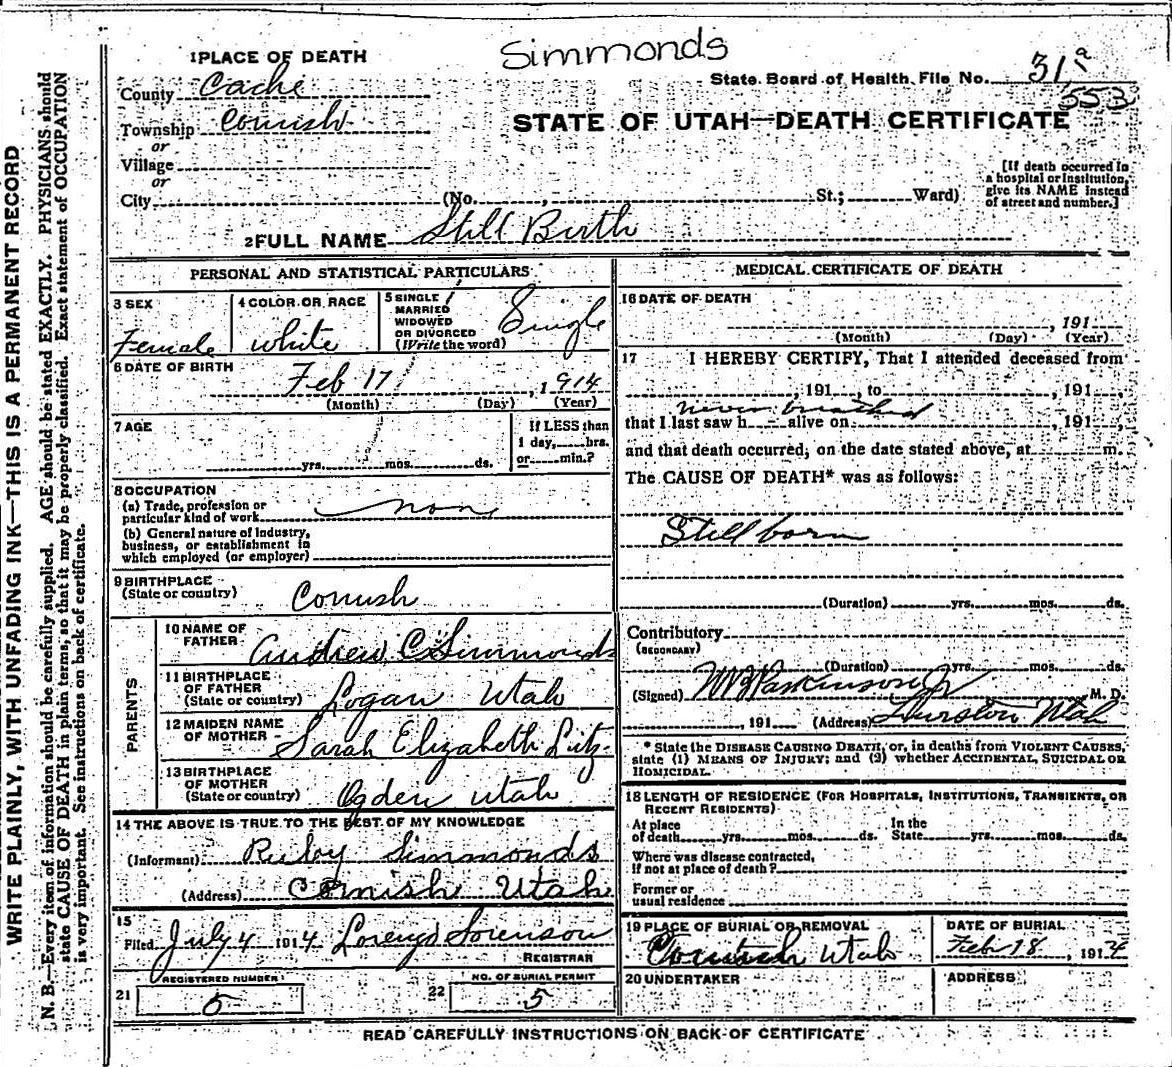 Simmonds
1 PLACE OF DEATH
State Board of Health File No. 31a
553
County Cache
Township Cornish
or
Village
or
City (No. , St.; Ward)
STATE OF UTAH—DEATH CERTIFICATE
[If death occurred in
a hospital or institution,
give its NAME instead
of street and number.]
2 FULL NAME Still Birth
PERSONAL AND STATISTICAL PARTICULARS
3 SEX Female
4 COLOR OR RACE white
5 SINGLE
MARRIED
WIDOWED
OR DIVORCED
(Write the word) Single
6 DATE OF BIRTH
Feb 17, 1914
(Month) (Day) (Year)
7 AGE
yrs. mos. ds.
If LESS than
1 day, hrs.
or min.?
8 OCCUPATION
(a) Trade, profession or
particular kind of work non
(b) General nature of industry,
business, or establishment in
which employed (or employer)
9 BIRTHPLACE
(State or country) Cornish
PARENTS
10 NAME OF
FATHER Andrew C Simmonds
11 BIRTHPLACE
OF FATHER
(State or country) Logan Utah
12 MAIDEN NAME
OF MOTHER Sarah Elizabeth Litz
13 BIRTHPLACE
OF MOTHER
(State or country) Ogden Utah
14 THE ABOVE IS TRUE TO THE BEST OF MY KNOWLEDGE
(Informant) Ruby Simmonds
(Address) Cornish Utah
15
Filed July 4 1914 Lorenzo Sorenson
REGISTRAR
REGISTERED NUMBER
21 5
NO. OF BURIAL PERMIT
22 5
MEDICAL CERTIFICATE OF DEATH
16 DATE OF DEATH
, 191
(Month) (Day) (Year)
17 I HEREBY CERTIFY, That I attended deceased from
, 191 , to , 191 ,
never breathed
that I last saw h alive on , 191 ,
and that death occurred, on the date stated above, at m.
The CAUSE OF DEATH* was as follows:
Still born
(Duration) yrs. mos. ds.
Contributory
(SECONDARY)
(Duration) yrs. mos. ds.
(Signed) W B Parkinson Jr M. D.
, 191 (Address) Thurston Utah
* State the DISEASE CAUSING DEATH, or, in deaths from VIOLENT CAUSES,
state (1) MEANS OF INJURY; and (2) whether ACCIDENTAL, SUICIDAL OR
HOMICIDAL.
18 LENGTH OF RESIDENCE (FOR HOSPITALS, INSTITUTIONS, TRANSIENTS, OR
RECENT RESIDENTS)
At place
of death yrs. mos. ds.
In the
State yrs. mos. ds.
Where was disease contracted,
if not at place of death?
Former or
usual residence
19 PLACE OF BURIAL OR REMOVAL
Cornish Utah
DATE OF BURIAL
Feb 18, 1914
20 UNDERTAKER
ADDRESS
READ CAREFULLY INSTRUCTIONS ON BACK OF CERTIFICATE
WRITE PLAINLY, WITH UNFADING INK—THIS IS A PERMANENT RECORD
N. B.—Every item of information should be carefully supplied. AGE should be stated EXACTLY. PHYSICIANS should
state CAUSE OF DEATH in plain terms, so that it may be properly classified. Exact statement of OCCUPATION
is very important. See instructions on back of certificate.